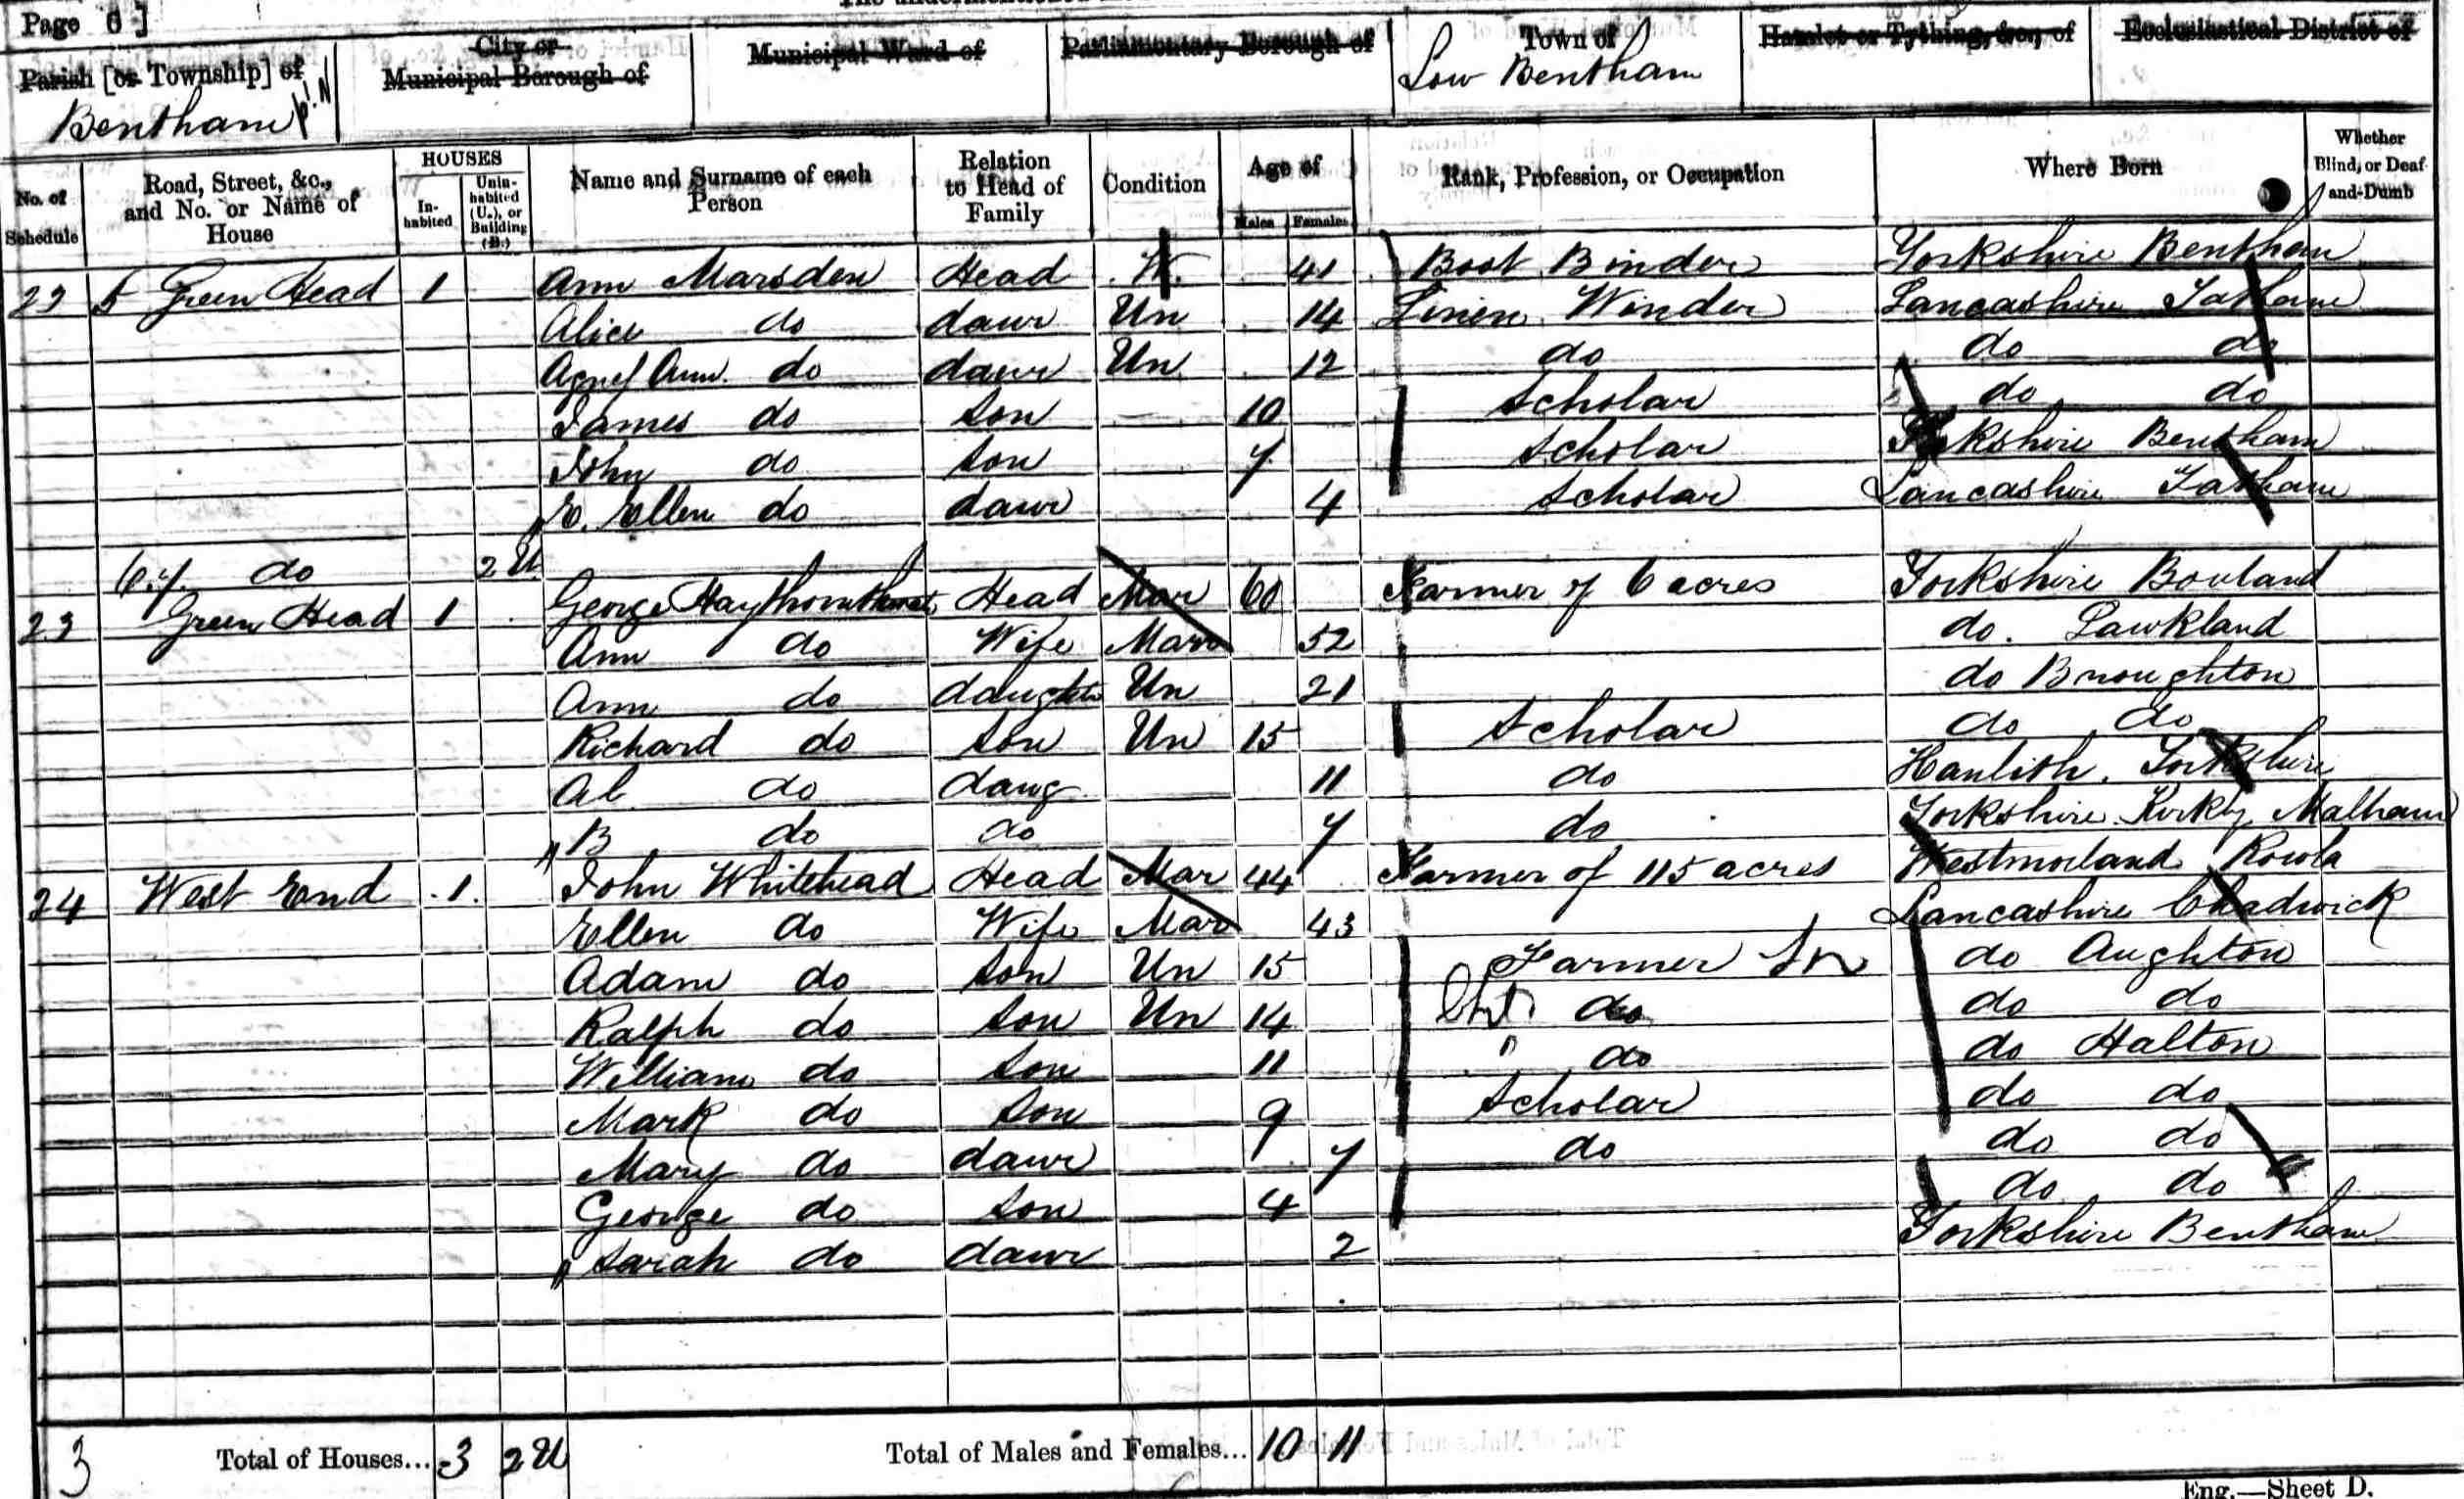 Page 6]
Parish [or Township] of
Bentham
City or
Municipal Borough of
Municipal Ward of
Parliamentary Borough of
Town of
Low Bentham
Hamlet or Tything, &c., of
Ecclesiastical District of
No. of Schedule
Road, Street, &c., and No. or Name of House
HOUSES
In-habited
Unin-habited (U.), or Building (B.)
Name and Surname of each Person
Relation to Head of Family
Condition
Age of
Males
Females
Rank, Profession, or Occupation
Where Born
Whether Blind, or Deaf-and-Dumb
5 Green Head 1 Ann Marsden Head W. 41 Boot Binder Yorkshire Bentham
Alice do daur Un 14 Linen Winder Lancashire Tatham
Agnes Ann do daur Un 12 do do do
James do Son 10 Scholar do do
John do Son 7 Scholar Yorkshire Bentham
E. Ellen do daur 4 Scholar Lancashire Tatham
6.7. do 2 U
23 Green Head 1 George Haythornthwaite Head Mar 60 Farmer of 6 acres Yorkshire Bouland
Ann do Wife Mar 52 do. Lawkland
Ann do daughter Un 21 do Broughton
Richard do Son Un 15 Scholar do do
Al do daug 11 do Hanlith. Yorkshire
B do do 7 do Yorkshire Kirkby Malham
24 West End 1 John Whitehead Head Mar 44 Farmer of 115 acres Westmorland
Ellen do Wife Mar 43 Lancashire Chadwick
Adam do Son Un 15 Farmer Sn do Aughton
Ralph do Son Un 14 do do do
William do Son 11 " do do Halton
Mark do Son 9 Scholar do do
Mary do daur 7 do do do
George do Son 4 do do
Sarah do daur 2 Yorkshire Bentham
3 Total of Houses... 3 2 U Total of Males and Females... 10 11
Eng.—Sheet D.